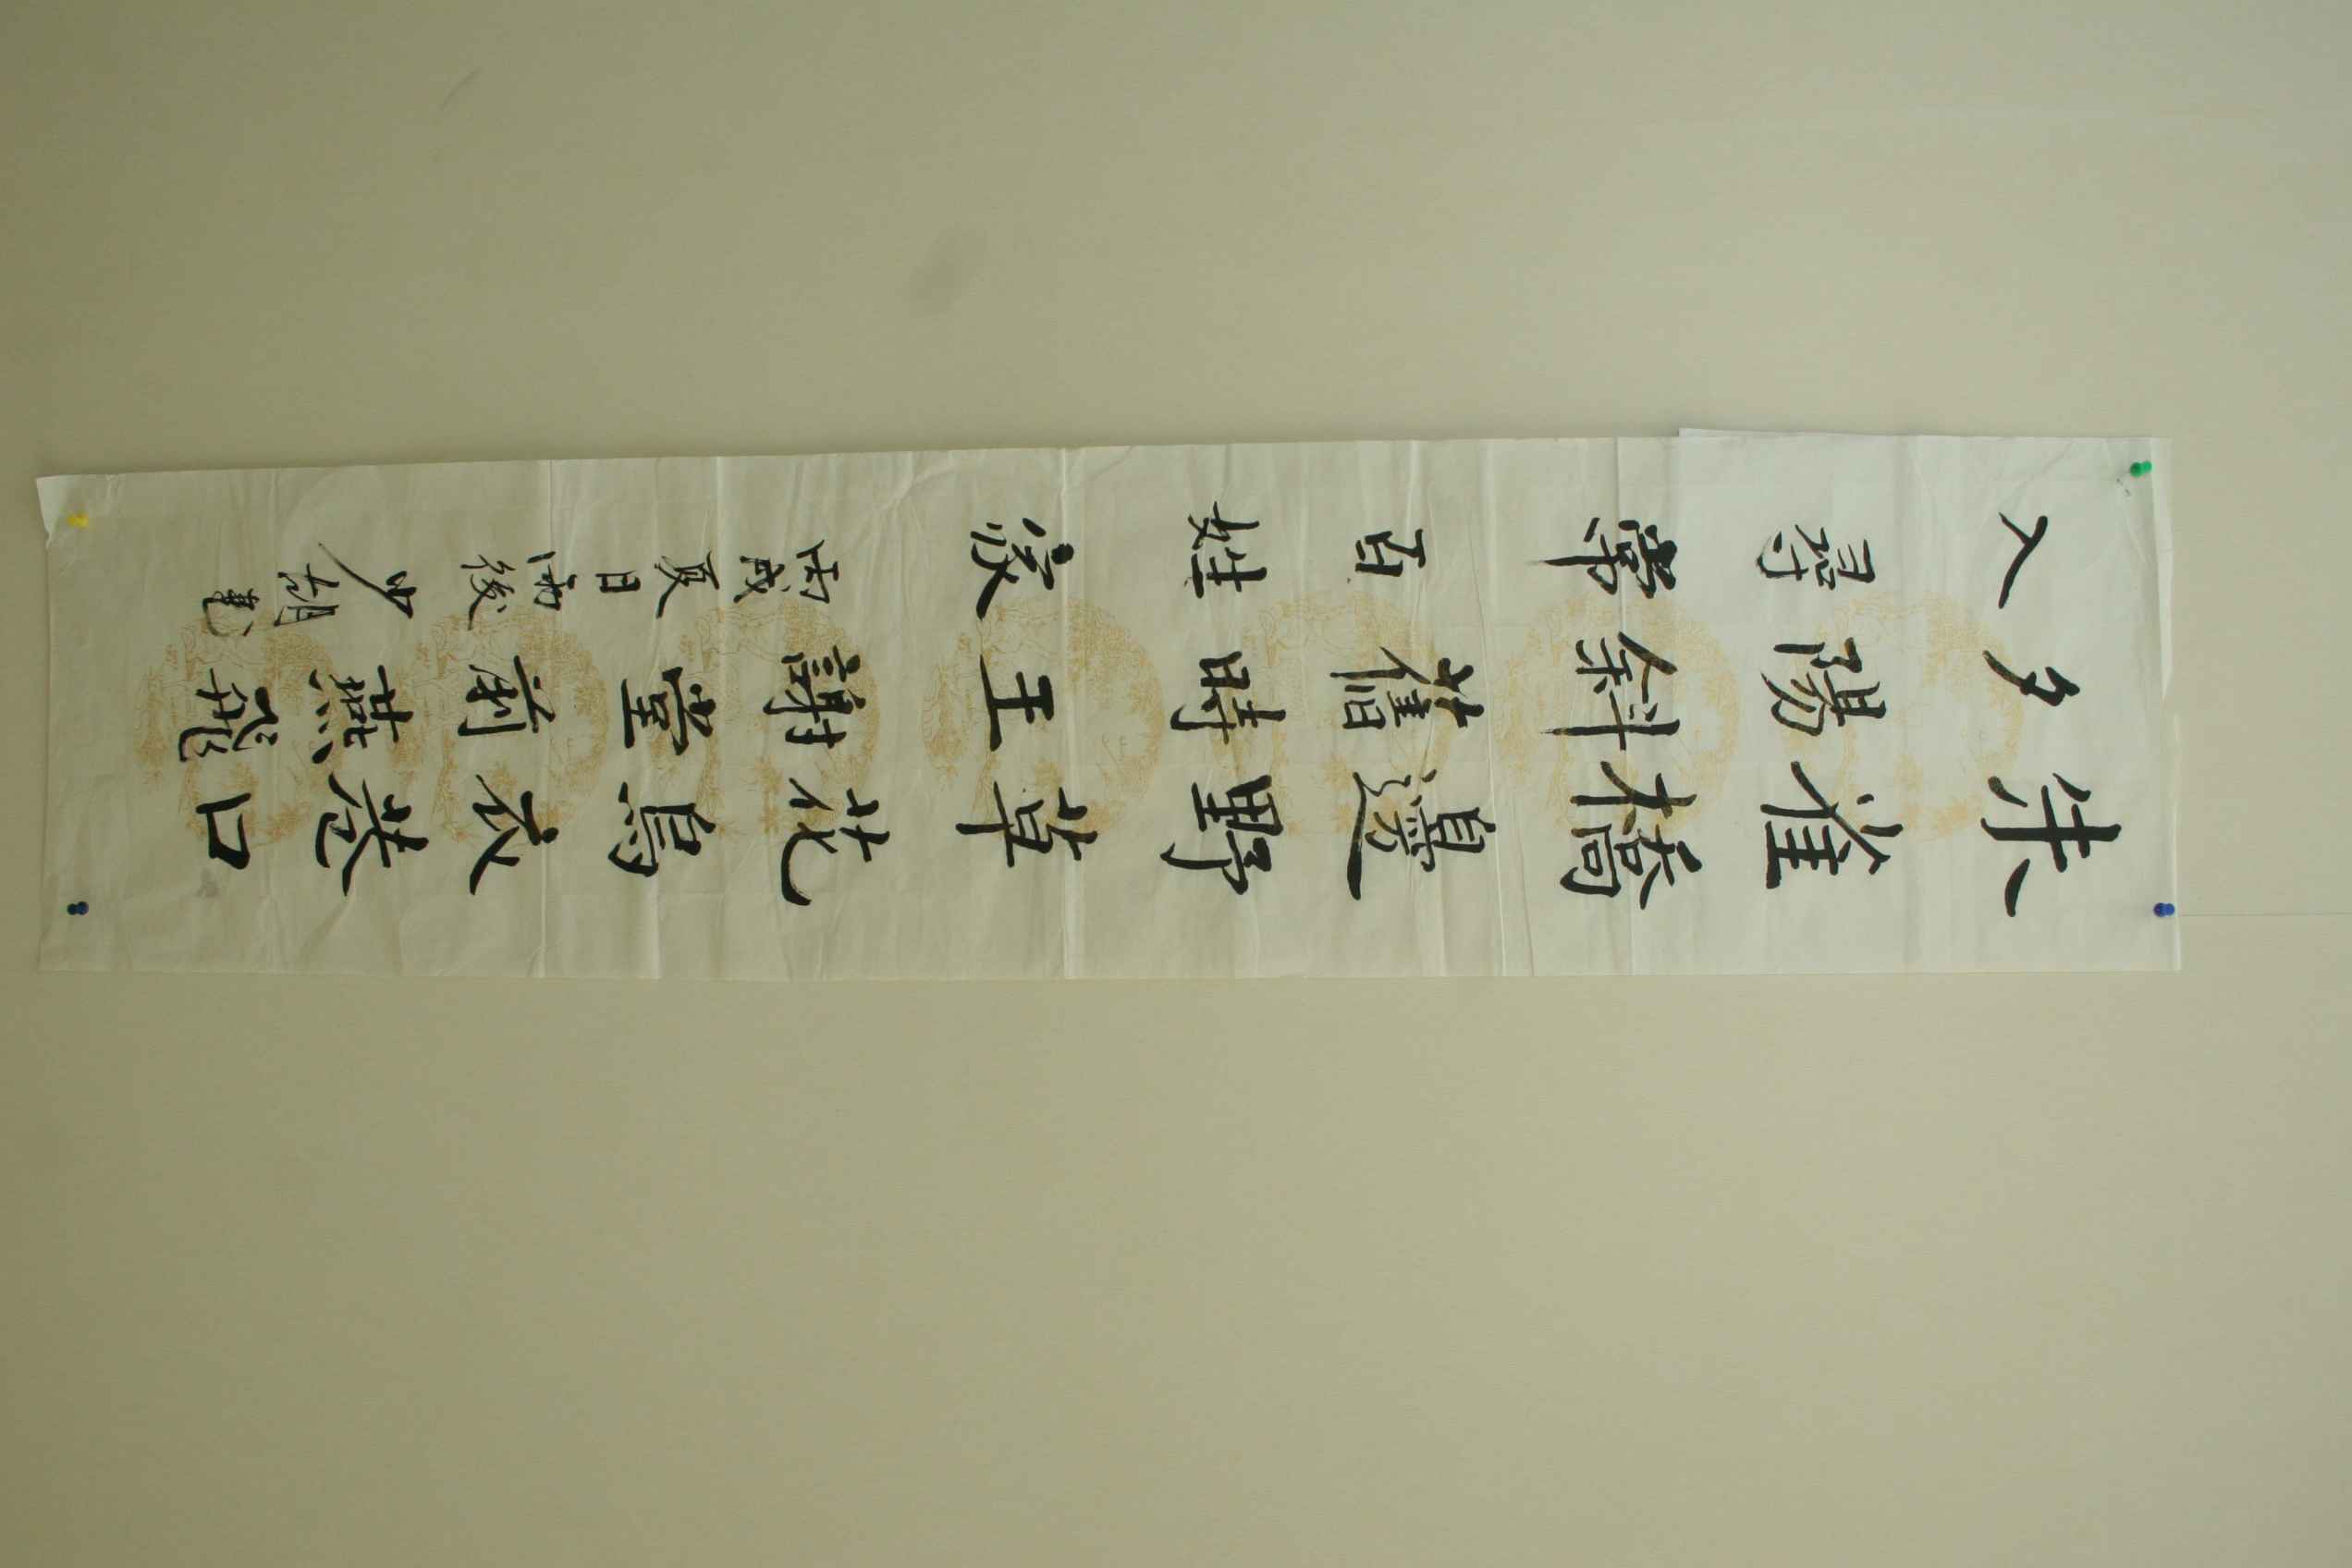 朱雀橋邊野草花烏衣巷口
夕陽斜舊時王謝堂前燕飛
入尋常百姓家
丙戌夏日雨後少胡書